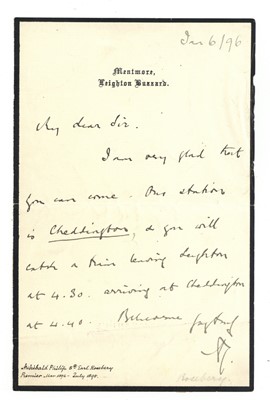 Jan 6/96
Mentmore,
Leighton Buzzard.
My dear Sir.
I am very glad that
you can come. Our station
is Cheddington, & you will
catch a train leaving Leighton
at 4.30. arriving at Cheddington
at 4.40. Believe me
Archibald Philip 5th Earl Rosebery
Premier Mar 1894 - July 1895.
Rosebery